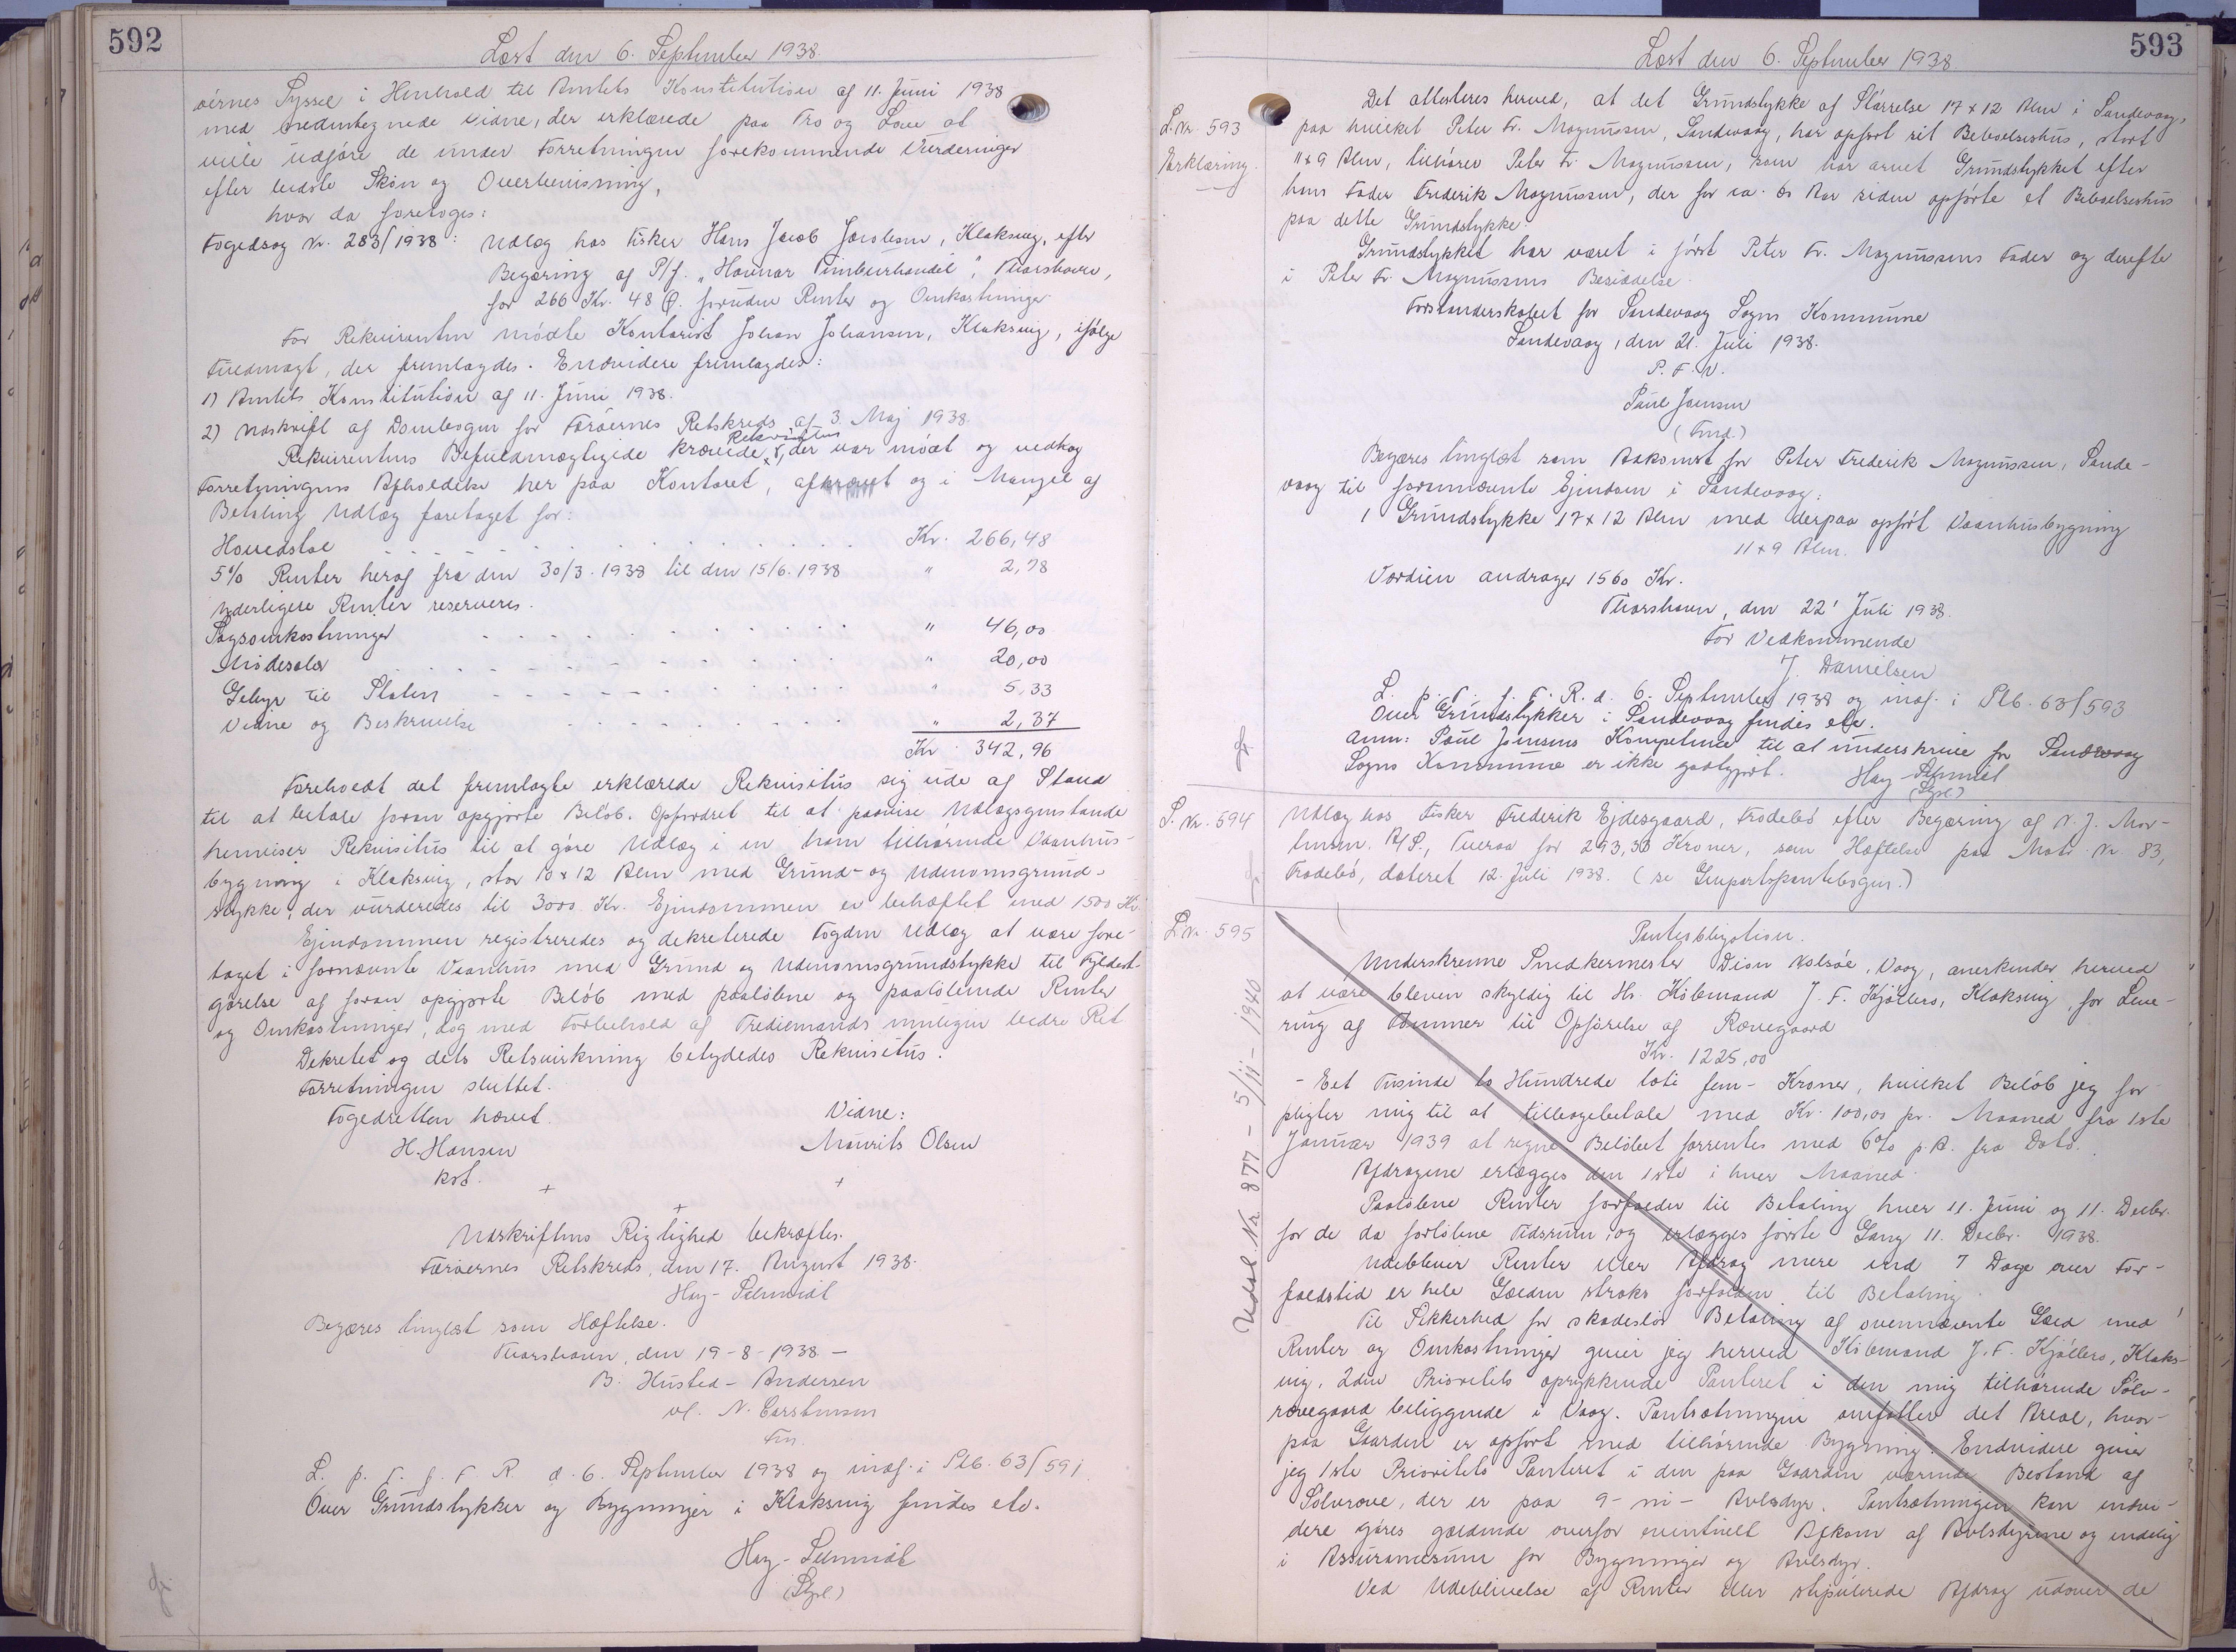 592
Læst den 6. September 1938.
öernes Syssel i Henhold til Amtets Konstitution af 11. Juni 1938
med medundertegnede Vidne, der erklærede paa Tro og Love at
ville udføre de under Forretningen forekommende Vurderinger
efter bedste Skøn og Overbevisning,
hvor da foretoges:
Fogedsag Nr. 283/1938: Udlæg hos Fisker Hans Jacob Jacobsen, Klaksvig, efter
Begæring af P/f. "Havnar Timburhandil", Thorshavn,
for 266 Kr. 48 Ø. foruden Renter og Omkostninger
For Rekvirenten mødte Kontorist Johan Johansen, Klaksvig, ifølge
Fuldmagt, der fremlagdes. Endvidere fremlagdes:
1) Amtets Konstitution af 11. Juni 1938.
2) Udskrift af Dombogen for Færøernes Retskreds af 3. Maj 1938.
Rekvirentens Befuldmægtigede krævede Rekvisitus, der var mødt og vedtog
Forretningens Afholdelse her paa Kontoret, afkrævet og i Mangel af
Betaling Udlæg foretaget for:
Hovedstol Kr. 266,48
5% Renter heraf fra den 30/3. 1938 til den 15/6. 1938 " 2,78
yderligere Renter reserveres.
Sagsomkostninger " 46,00
Mødesalær " 20,00
Gebyr til Staten " 5,33
Vidne og Beskrivelse " 2,37
Kr. 342,96
Foreholdt det fremlagte erklærede Rekvisitus sig ude af Stand
til at betale foran opgjorte Beløb. Opfordret til at paavise Udlægsgenstande
henviser Rekvisitus til at gøre Udlæg i en ham tilhørende Vaanhus-
bygning i Klaksvig, stor 10 x 12 Alen med Grund- og Udenomsgrund-
stykke, der vurderedes til 3000 Kr. Ejendommen er behæftet med 1500 Kr.
Ejendommen registreredes og dekreterede Fogden Udlæg at være fore-
taget i fornævnte Vaanhus med Grund og Udenomsgrundstykke til Fyldest-
gørelse af foran opgjorte Beløb med paaløbne og paaløbende Renter
og Omkostninger, dog med Forbehold af Trediemands muligen bedre Ret
Dekretet og dets Retsvirkning betydedes Rekvisitus.
Forretningen sluttet.
Fogedretten hævet. Vidne:
H. Hansen Mourits Olsen
kst.
+ + +
Udskriftens Rigtighed bekræftes.
Færøernes Retskreds, den 17. August 1938.
Hey-Schmidt
Begæres tinglæst som Hæftelse.
Thorshavn, den 19-8-1938-
B. Husted-Andersen
v/. N. Carstensen
Fm.
L. p. T. f. F. R. d. 6. September 1938 og indf. i Ptb. 63/591.
Over Grundstykker og Bygninger i Klaksvig findes etc.
Hey-Schmidt
(Sgd.)
593
Læst den 6. September 1938.
L. Nr. 593
Erklæring.
Det attesteres herved, at det Grundstykke af Størrelse 17 x 12 Alen i Sandevaag,
paa hvilket Peter Fr. Magnussen, Sandevaag, har opført sit Beboelseshus, stort
11 x 9 Alen, tilhører Peter Fr. Magnussen, som har arvet Grundstykket efter
hans Fader Frederik Magnussen, der for ca. Aar siden opførte et Beboelseshus
paa dette Grundstykke.
Grundstykket har været i først Peter Fr. Magnussens Fader og derefter
i Peter Fr. Magnussens Besiddelse.
Forstanderskabet for Sandevaag Sogns Kommune
Sandevaag, den 21. Juli 1938.
P. F. V.
Poul Joensen
(Fmd.)
Begæres tinglæst som Adkomst for Peter Frederik Magnussen, Sande-
vaag til forannævnte Ejendom i Sandevaag:
1 Grundstykke 17 x 12 Alen med derpaa opført Vaanhusbygning
11 x 9 Alen.
Værdien andrager 1560 Kr.
Thorshavn, den 22' Juli 1938.
For Vedkommende
J. Danielsen
L. p. T. f. F. R. d. 6. September 1938 og indf. i Ptb. 63/593
Over Grundstykker i Sandevaag findes etc.
Anm: Poul Joensens Kompetence til at underskrive for Sandevaag
Sogns Kommune er ikke godtgjort. Hey-Schmidt
(Sgd.)
L. Nr. 594
Udlæg hos Fisker Frederik Ejdesgaard, Frodebø efter Begæring af N. J. Mor-
tensen. A/S., Tveraa for 293,33 Kroner, som Hæftelse paa Matr. Nr. 83,
Frodebø, dateret 12. Juli 1938. (se Genpartspantebogen.)
L. Nr. 595
Udsl. Nr. 877 - 5/11 - 1940
Panteobligation.
Underskrevne Snedkermester Dion Nolsøe, Vaag, anerkender herved
at være bleven skyldig til Hr. Købmand J. F. Kjølbro, Klaksvig, for Leve-
ring af Tømmer til Opførelse af Rævegaard
Kr. 1225,00
- Eet Tusinde to Hundrede toti fem - Kroner, hvilket Beløb jeg for-
pligter mig til at tilbagebetale med Kr. 100,00 pr. Maaned fra 1ste
Januar 1939 at regne. Beløbet forrentes med 6% p. A. fra Dato.
Afdragene erlægges den 1ste i hver Maaned.
Paaløbne Renter forfalder til Betaling hver 11. Juni og 11. Decbr.
for de da forløbne Tidsrum, og erlægges første Gang 11. Decbr. 1938.
Udebliver Renter eller Afdrag mere end 7 Dage over For-
faldstid er hele Gælden straks forfalden til Betaling.
Til Sikkerhed for skadesløs Betaling af ovennævnte Gæld med
Renter og Omkostninger giver jeg herved Købmand J. F. Kjølbro, Klaks-
vig, 2den Prioritets oprykkende Panteret i den mig tilhørende Sølv-
rævegaard beliggende i Vaag. Pantsætningen omfatter det Areal, hvor-
paa Gaarden er opført med tilhørende Bygning. Endvidere giver
jeg 1ste Prioritets Panteret i den paa Gaarden værende Bestand af
Sølvræve, der er paa 9 - ni - Avlsdyr. Pantsætningen kan endvi-
dere gøres gældende overfor eventuelt Afkom af Avlsdyrene og endelig
i Assurancesum for Bygninger og Avlsdyr.
Ved Udeblivelse af Renter eller stipulerede Afdrag udover de